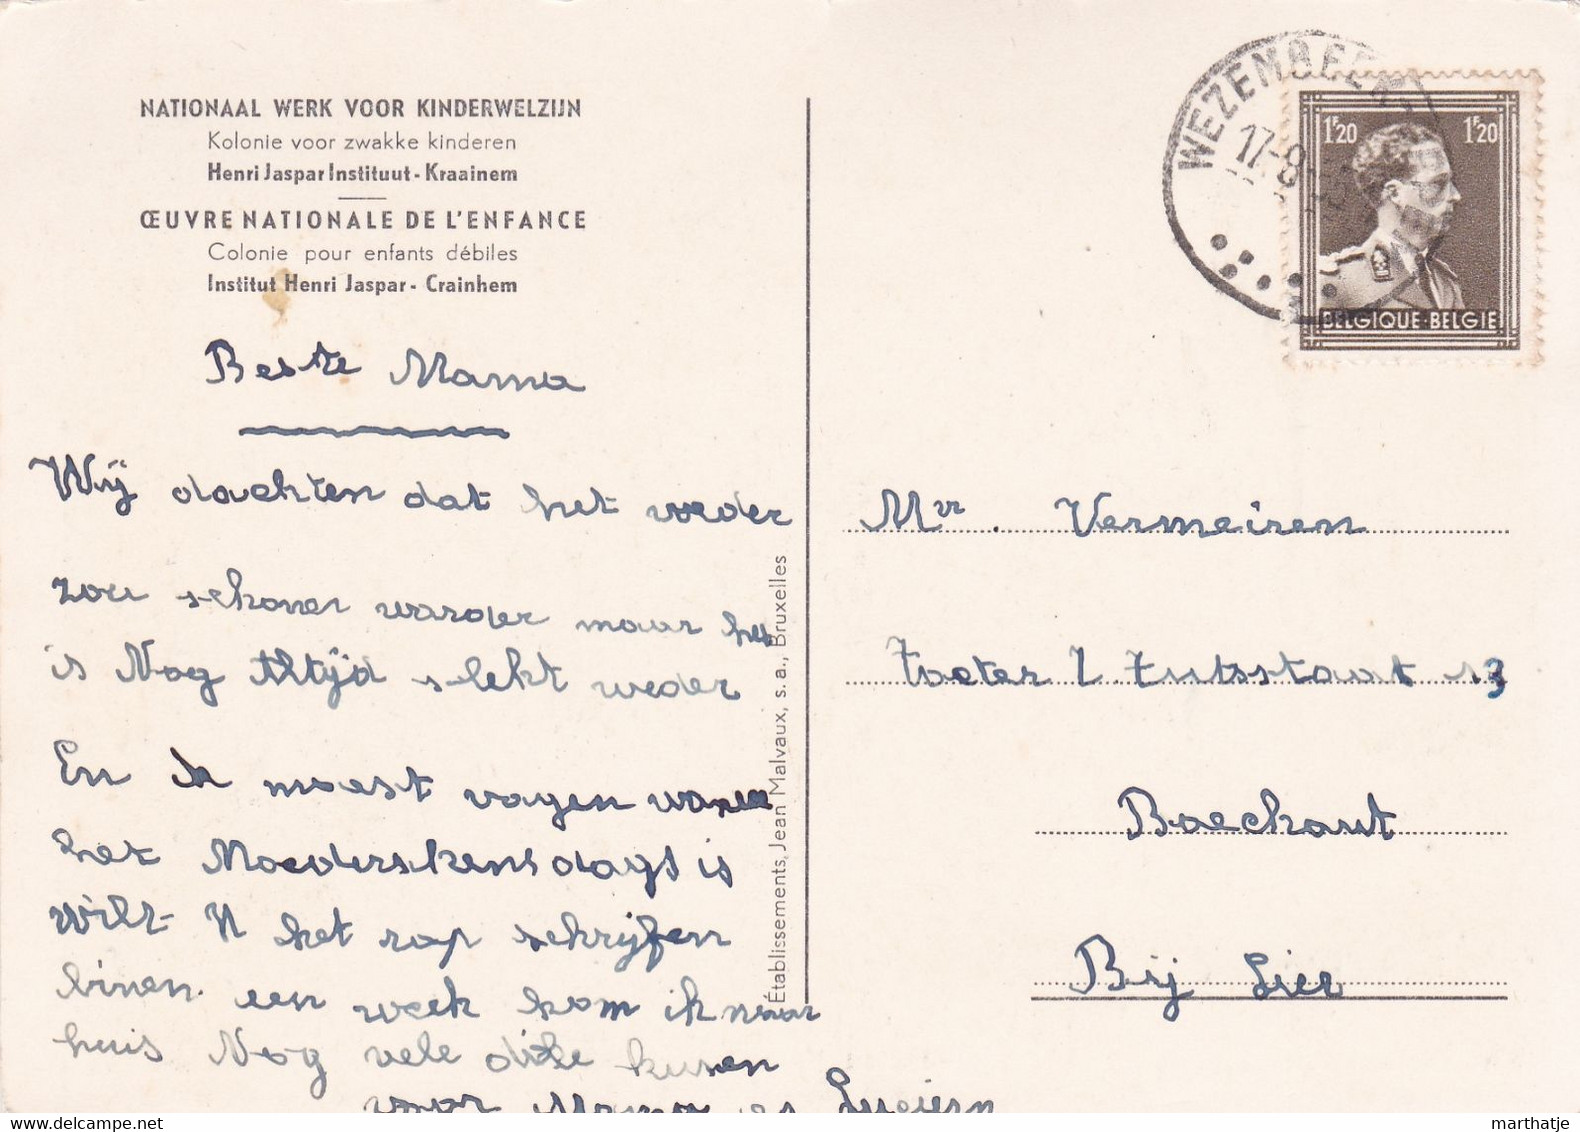 NATIONAAL WERK VOOR KINDERWELZIJN
Kolonie voor zwakke kinderen
Henri Jaspar Instituut - Kraainem
ŒUVRE NATIONALE DE L'ENFANCE
Colonie pour enfants débiles
Institut Henri Jaspar - Crainhem
Beste Mama
Wij dachten dat het weder
zou schoner warder maar het
is Nog Altijd slekt weder
En ik moest vragen waneer
het Moederskensdags is
wilt U het rap schrijfen
binen een week kom ik naar
huis Nog vele dike kusen
voor Mama es
Établissements Jean Malvaux, s. a., Bruxelles
WEZEMBEEK
17-8
1F20 1F20
BELGIQUE·BELGIE
Mvr. Vermeiren
13
Boechout
Bij Lier
marthatje